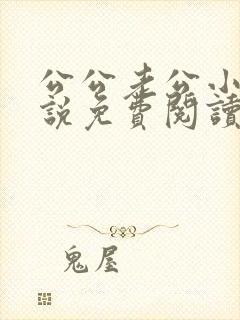 公公老公小
說免費閱讀
鬼屋